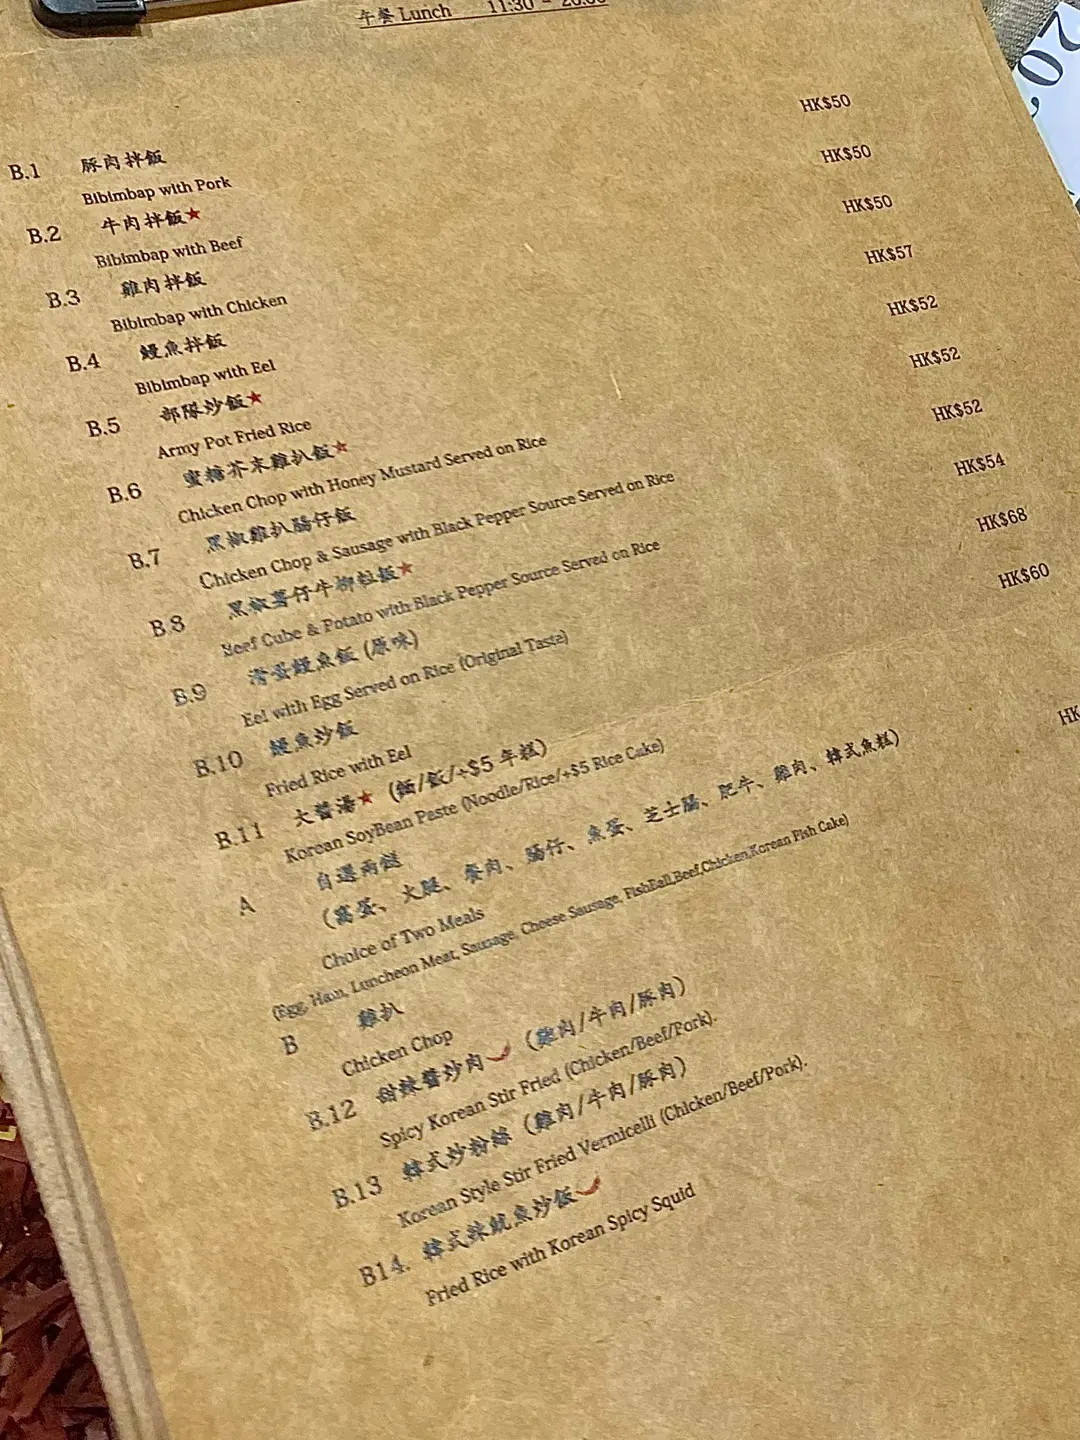 午餐 Lunch 11:30 -
B.1 豚肉拌飯 HK$50
Bibimbap with Pork
B.2 牛肉拌飯★ HK$50
Bibimbap with Beef
B.3 雞肉拌飯 HK$50
Bibimbap with Chicken
B.4 鰻魚拌飯 HK$57
Bibimbap with Eel
B.5 部隊炒飯★ HK$52
Army Pot Fried Rice
B.6 蜜糖芥末雞扒飯★ HK$52
Chicken Chop with Honey Mustard Served on Rice
B.7 黑椒雞扒腸仔飯 HK$52
Chicken Chop & Sausage with Black Pepper Source Served on Rice
B.8 黑椒薯仔牛柳粒飯★ HK$54
Beef Cube & Potato with Black Pepper Source Served on Rice
B.9 滑蛋鰻魚飯 (原味) HK$68
Eel with Egg Served on Rice (Original Taste)
B.10 鰻魚炒飯 HK$60
Fried Rice with Eel
B.11 大醬湯★ (麵/飯/+$5 年糕) HK
Korean SoyBean Paste (Noodle/Rice/+$5 Rice Cake)
A 自選兩餸
(窩蛋、火腿、餐肉、腸仔、魚蛋、芝士腸、肥牛、雞肉、韓式魚糕)
Choice of Two Meals
(Egg, Ham, Luncheon Meat, Sausage, Cheese Sausage, FishBall,Beef,Chicken,Korean Fish Cake)
B 雞扒
Chicken Chop
B.12 甜辣醬炒肉 (雞肉/牛肉/豚肉)
Spicy Korean Stir Fried (Chicken/Beef/Pork).
B.13 韓式炒粉絲 (雞肉/牛肉/豚肉)
Korean Style Stir Fried Vermicelli (Chicken/Beef/Pork).
B14. 韓式辣魷魚炒飯
Fried Rice with Korean Spicy Squid